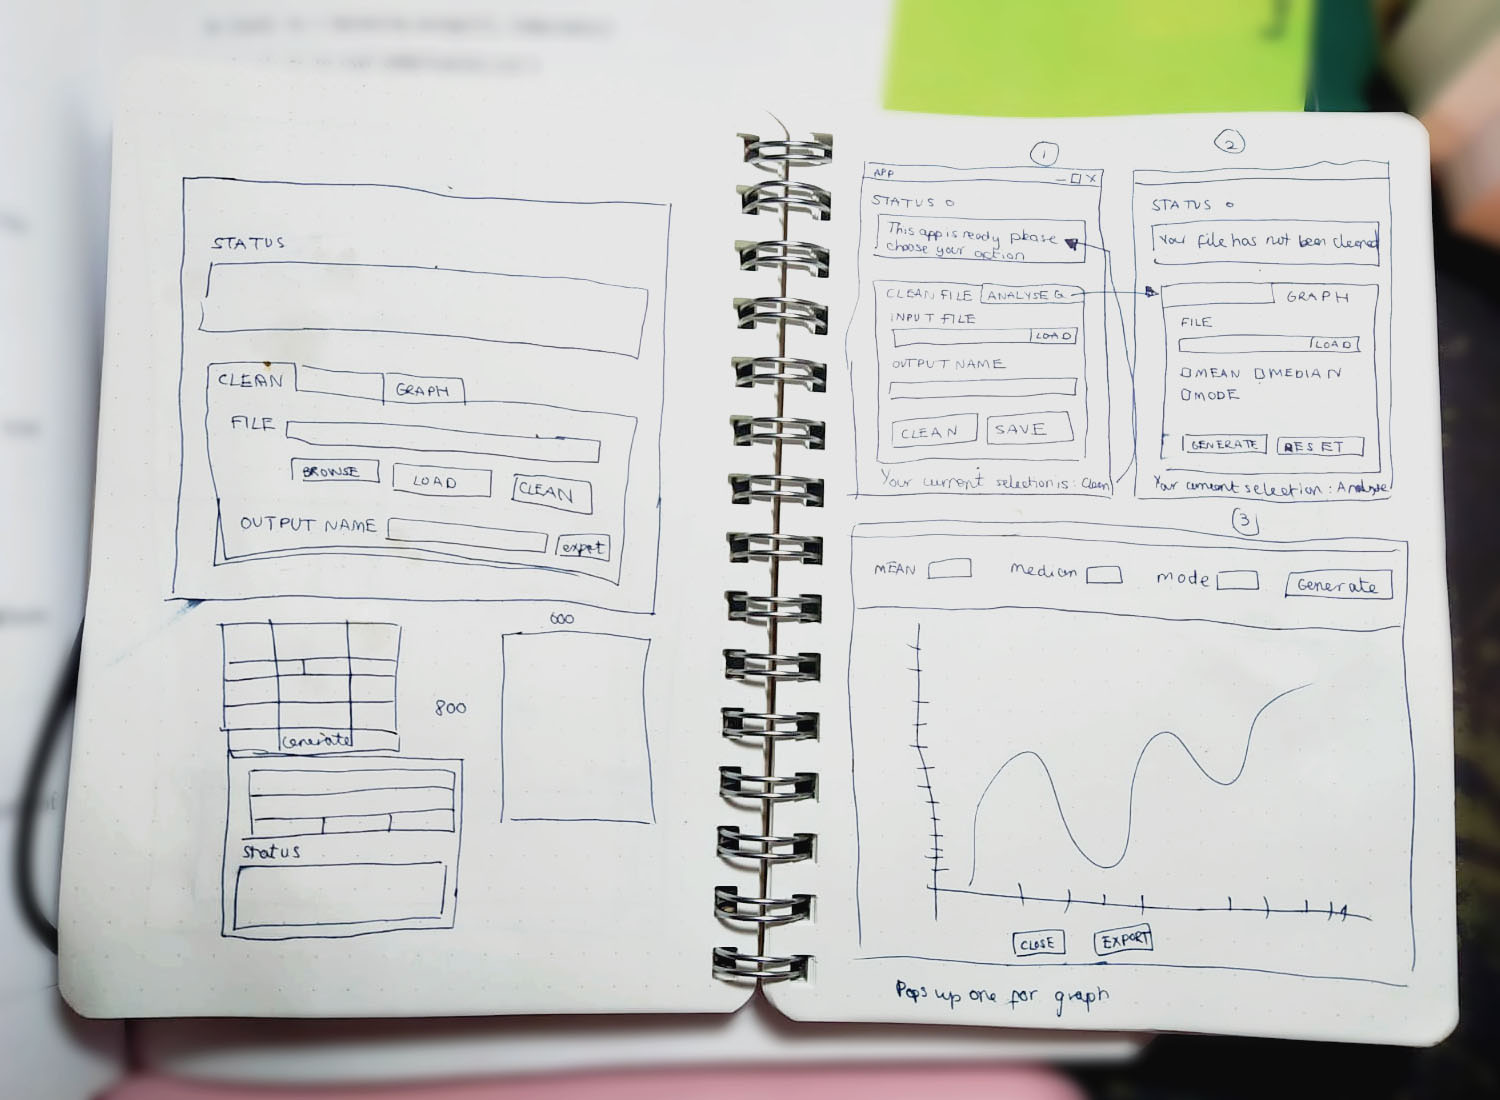 STATUS
CLEAN
GRAPH
FILE
BROWSE
LOAD
CLEAN
OUTPUT NAME
export
Generate
Status
600
800
1
APP
STATUS
This app is ready please
choose your action
CLEAN FILE
ANALYSE G
INPUT FILE
LOAD
OUTPUT NAME
CLEAN
SAVE
Your current selection is: Clean
2
STATUS
Your file has not been cleaned
GRAPH
FILE
LOAD
MEAN
MEDIAN
MODE
GENERATE
RESET
Your current selection: Analyse
3
MEAN
Median
mode
Generate
CLOSE
EXPORT
Pops up one for graph